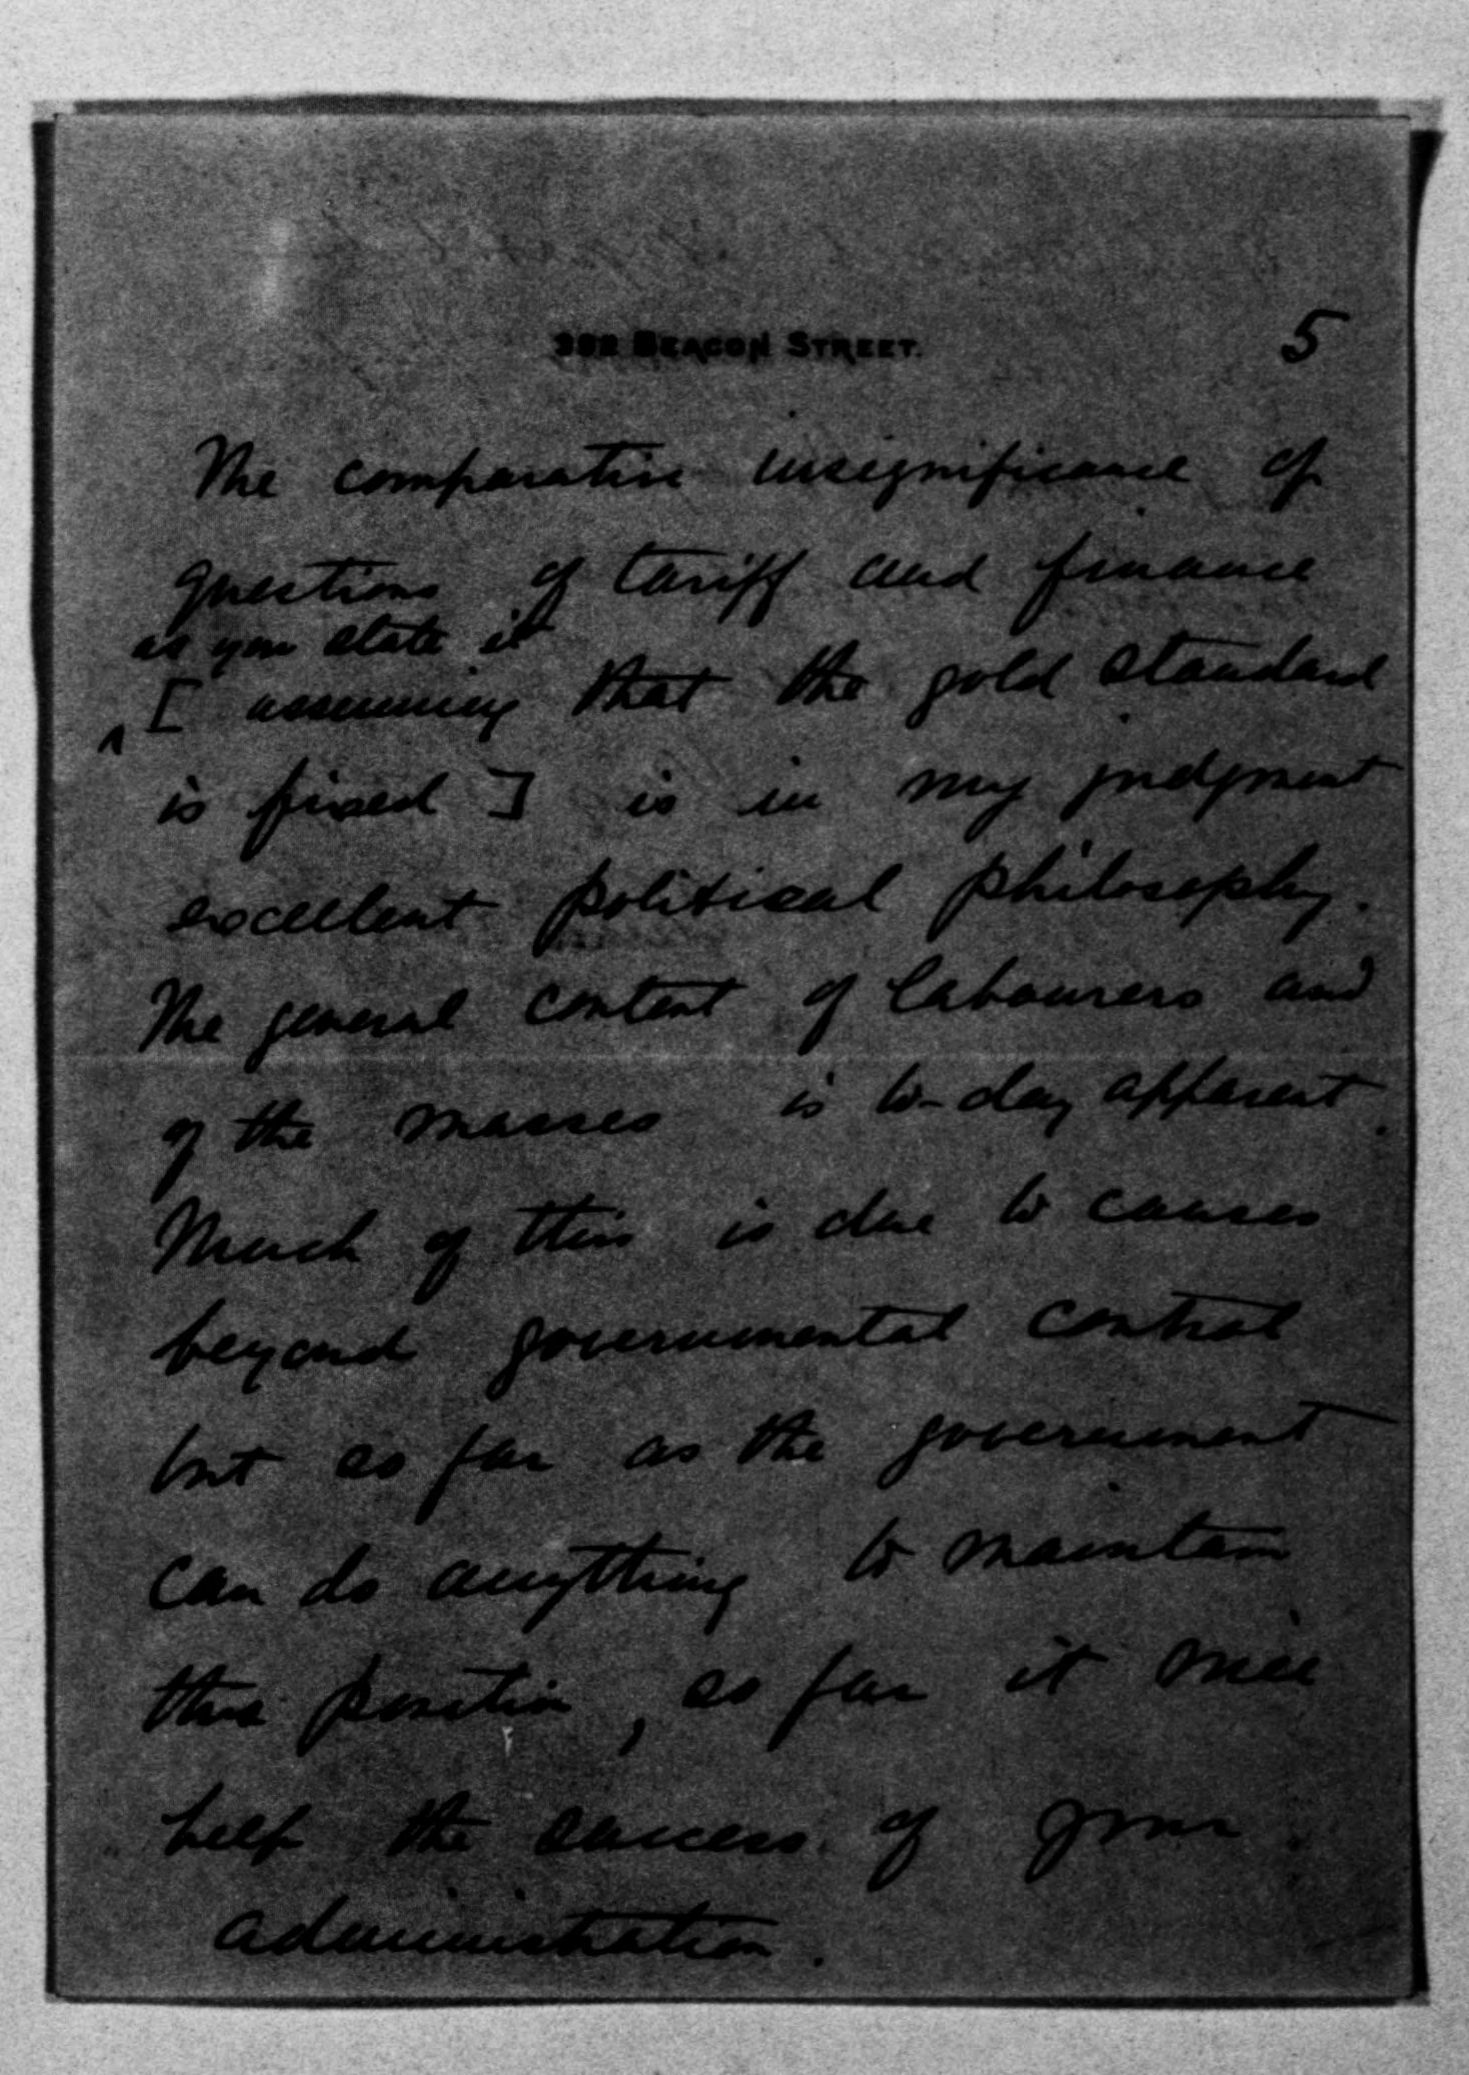 392 BEACON STREET.
5
The comparative insignificance of
questions of tariff and finance
as you state it
^ [ assuming that the gold standard
is fixed ] is in my judgment
excellent political philosophy.
The general content of labourers and
of the masses is to-day apparent.
Much of this is due to causes
beyond governmental control
but so far as the government
can do anything to maintain
this position, so far it will
help the success of your
administration.